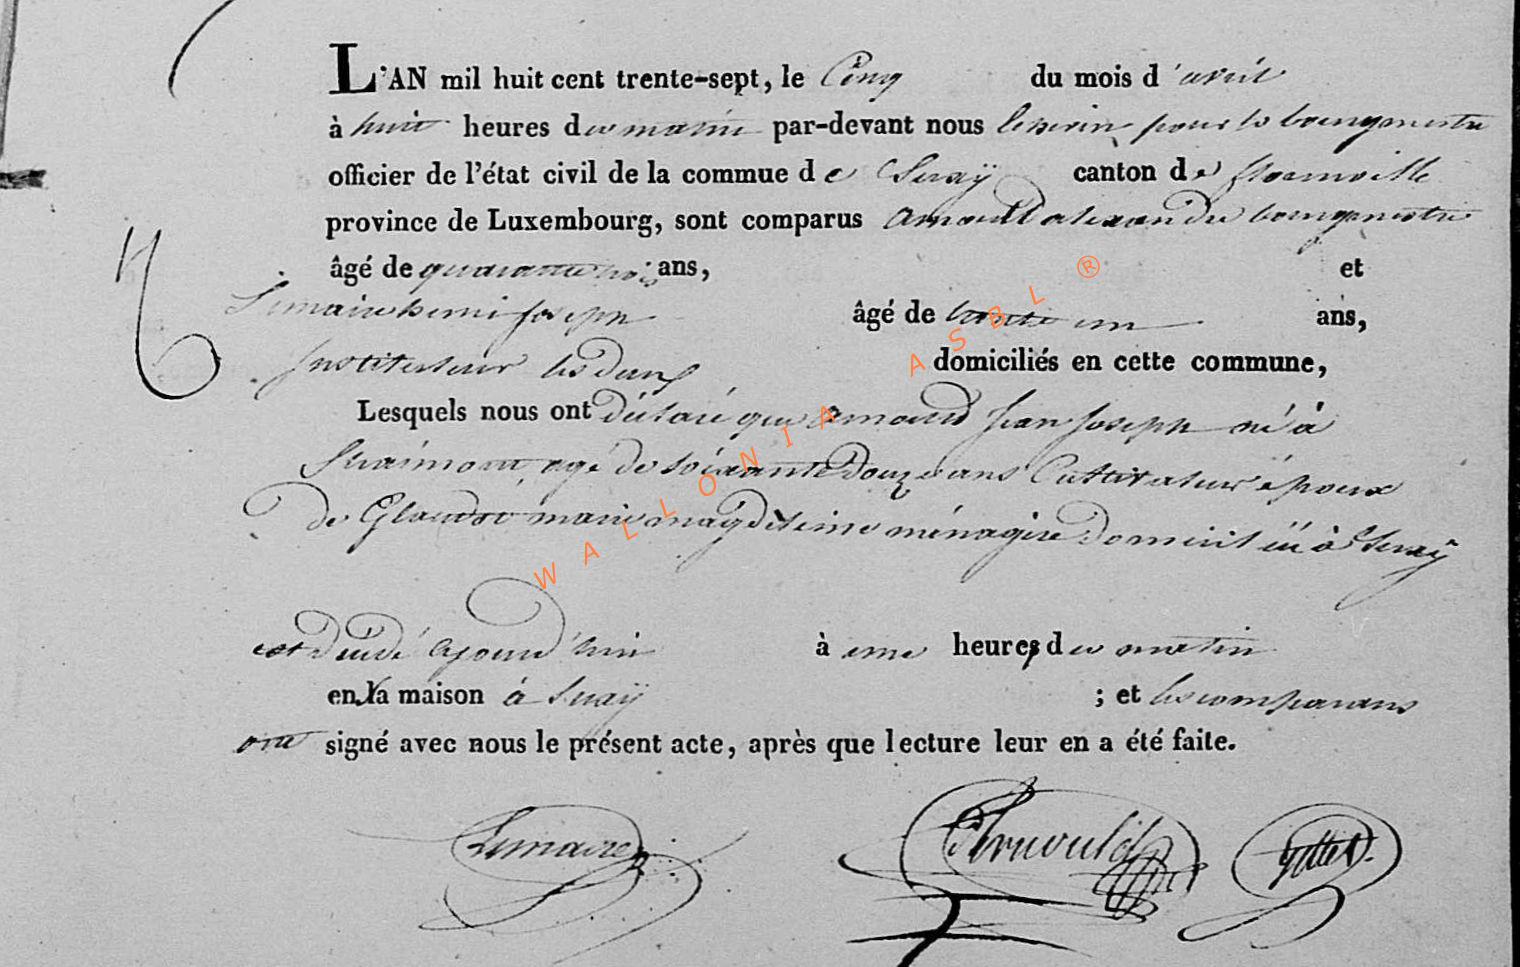 L'AN mil huit cent trente-sept, le Cinq du mois d'avril
à huit heures du matin par-devant nous echevin pour le bourgmestre
officier de l'état civil de la commue de Suxÿ canton de florenville
province de Luxembourg, sont comparus arnould alexandre bourgmestre
âgé de quarante trois ans, et
Lemaire henri joseph âgé de trente un ans,
instituteur les deux domiciliés en cette commune,
Lesquels nous ont déclaré que arnould jean joseph né à
Straimont agé de soixante douze ans Cultivateur époux
de Glaudot marie magdeleine ménagère domicilié à Suxÿ
est décédé aujourd'hui à une heures du matin
en la maison à Suxÿ ; et les comparans
ont signé avec nous le présent acte, après que lecture leur en a été faite.
Lemaire Arnould
WALLONIA ASBL ®